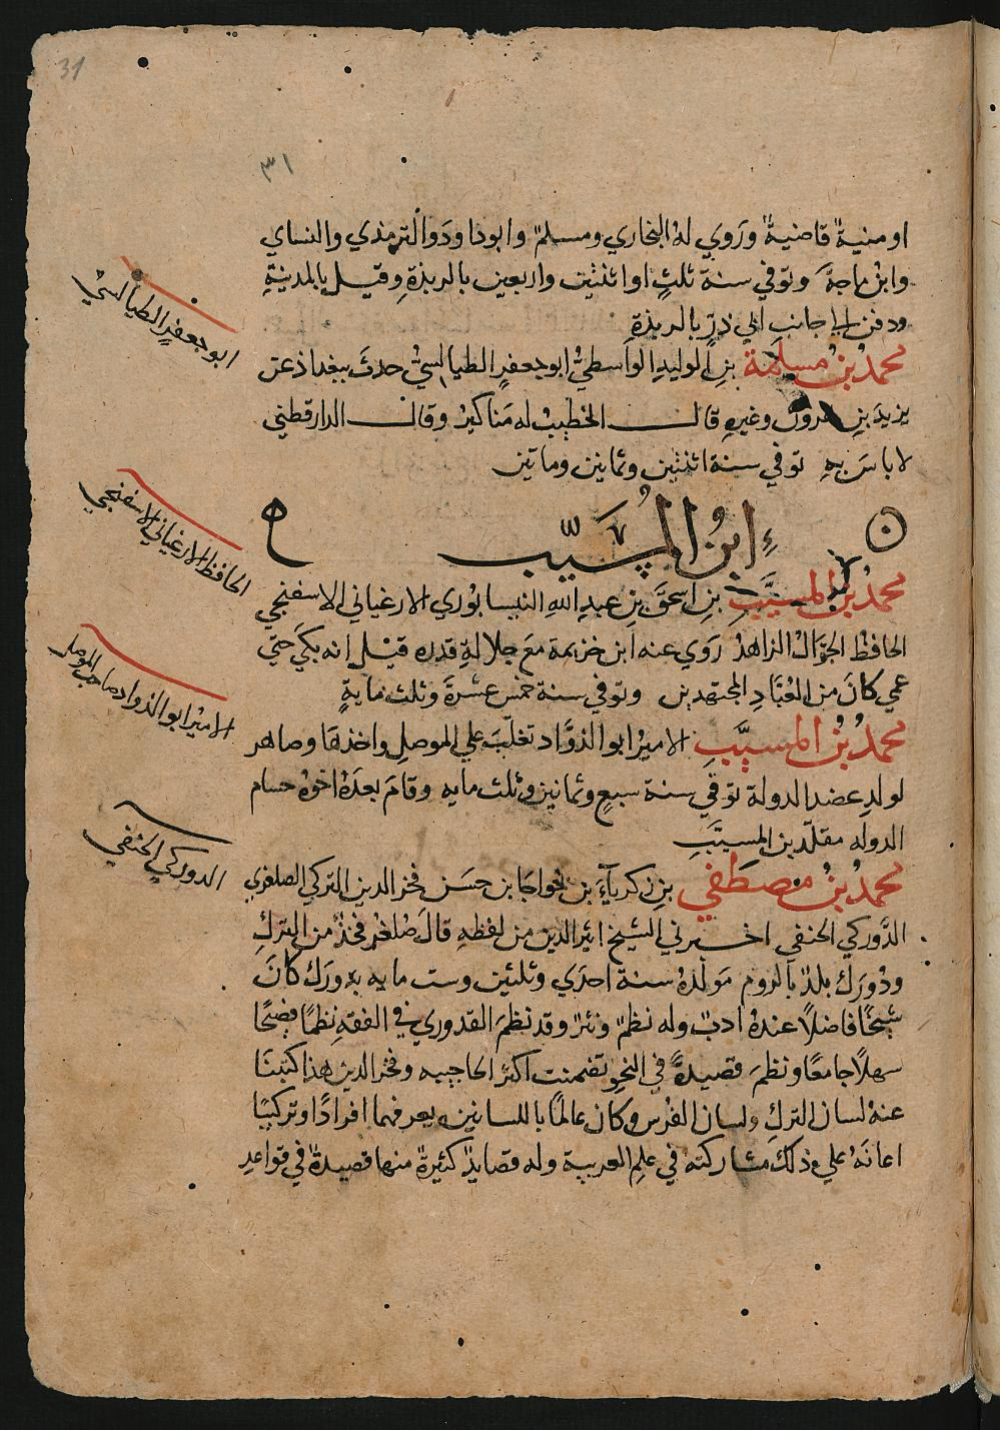 31
٣١
او منيةٌ قاضيةٌ ورَوي لهُ البخاري ومسلمٌ وابوداودَ والترمذي والنساي
وابنُ ماجةَ وتوفي سنة ثلثٍ او اثنتين واربعين بالربذةِ وقيل بالمدينةِ
ودفن الي جانب ابي ذرٍّ بالربذةِ
محمدُ بنُ مسلمةَ بنِ الوليدِ الواسطيُّ ابو جعفرٍ الطيالسيُّ حدثَ ببغداذ عن
يزيدَ بنِ هرون وغيرِهِ قال الخطيبُ له مَناكيرُ وقال الدارقطني
لا باسَ بهِ توفي سنة اثنتين وثمانين وماتين
ابنُ المسيَّب
محمدُ بنُ المسيَّبِ بنِ اسحقَ بنِ عبدِ اللهِ النيسابُوري الارغياني الاسفنجي
الحافظُ الجوَّالُ الزاهدُ رَوي عنه ابن خزيمة معَ جلالةِ قدره قيل انه بكَي حتي
عمي كانَ من العُبَّادِ المجتهدين وتوفي سنة خمس عشرةَ وثلث مايةٍ
محمدُ بنُ المسيَّبِ الاميرُ ابو الذوَّاد تغلّبَ علي الموصلِ واخذهَا وصاهر
لولدِ عضد الدولة توفي سنة سبعٍ وثمانين وثلث مايه وقامَ بعدَهُ اخوهُ حسام
الدوله مقلّد بن المسيَّبِ
محمدُ بنُ مصطفي بنِ زكرياءَ بن خواجَا بن حسَن فخر الدين التركي الصلغري
الدَّوركي الحنفي اخبرني الشيخ اثير الدين من لفظهِ قالَ صُلغُر فخذٌ من التركِ
ودُورَك بلدٌ بالروم مَولدُهُ سنة احدَي وثلثين وست مايه بدورَك كانَ
شيخًا فاضلًا عندهُ ادبٌ وله نظمٌ ونثرٌ وقد نظمَ القدوري في الفقهِ نظمًا فصيحًا
سهلًا جامعًا ونظمَ قصيدةً في النحو تضمنت اكثرَ الحاجبيه وفخر الدين هذا كتبنَا
عنهُ لسان التركِ ولسان الفُرس وكان عالمًا باللسانين يعرفهما افرادًا وتركيبًا
اعانَهُ علي ذلكَ مشاركته في علمِ العربية وله قصايدُ كثيرةٌ منها قصيدةٌ في قواعدِ
ابو جعفرٍ الطيالسيُّ
الحافظ الارغياني الاسفنجي
الاميرُ ابو الذواد صاحب الموصل
الدوركي الحنفي